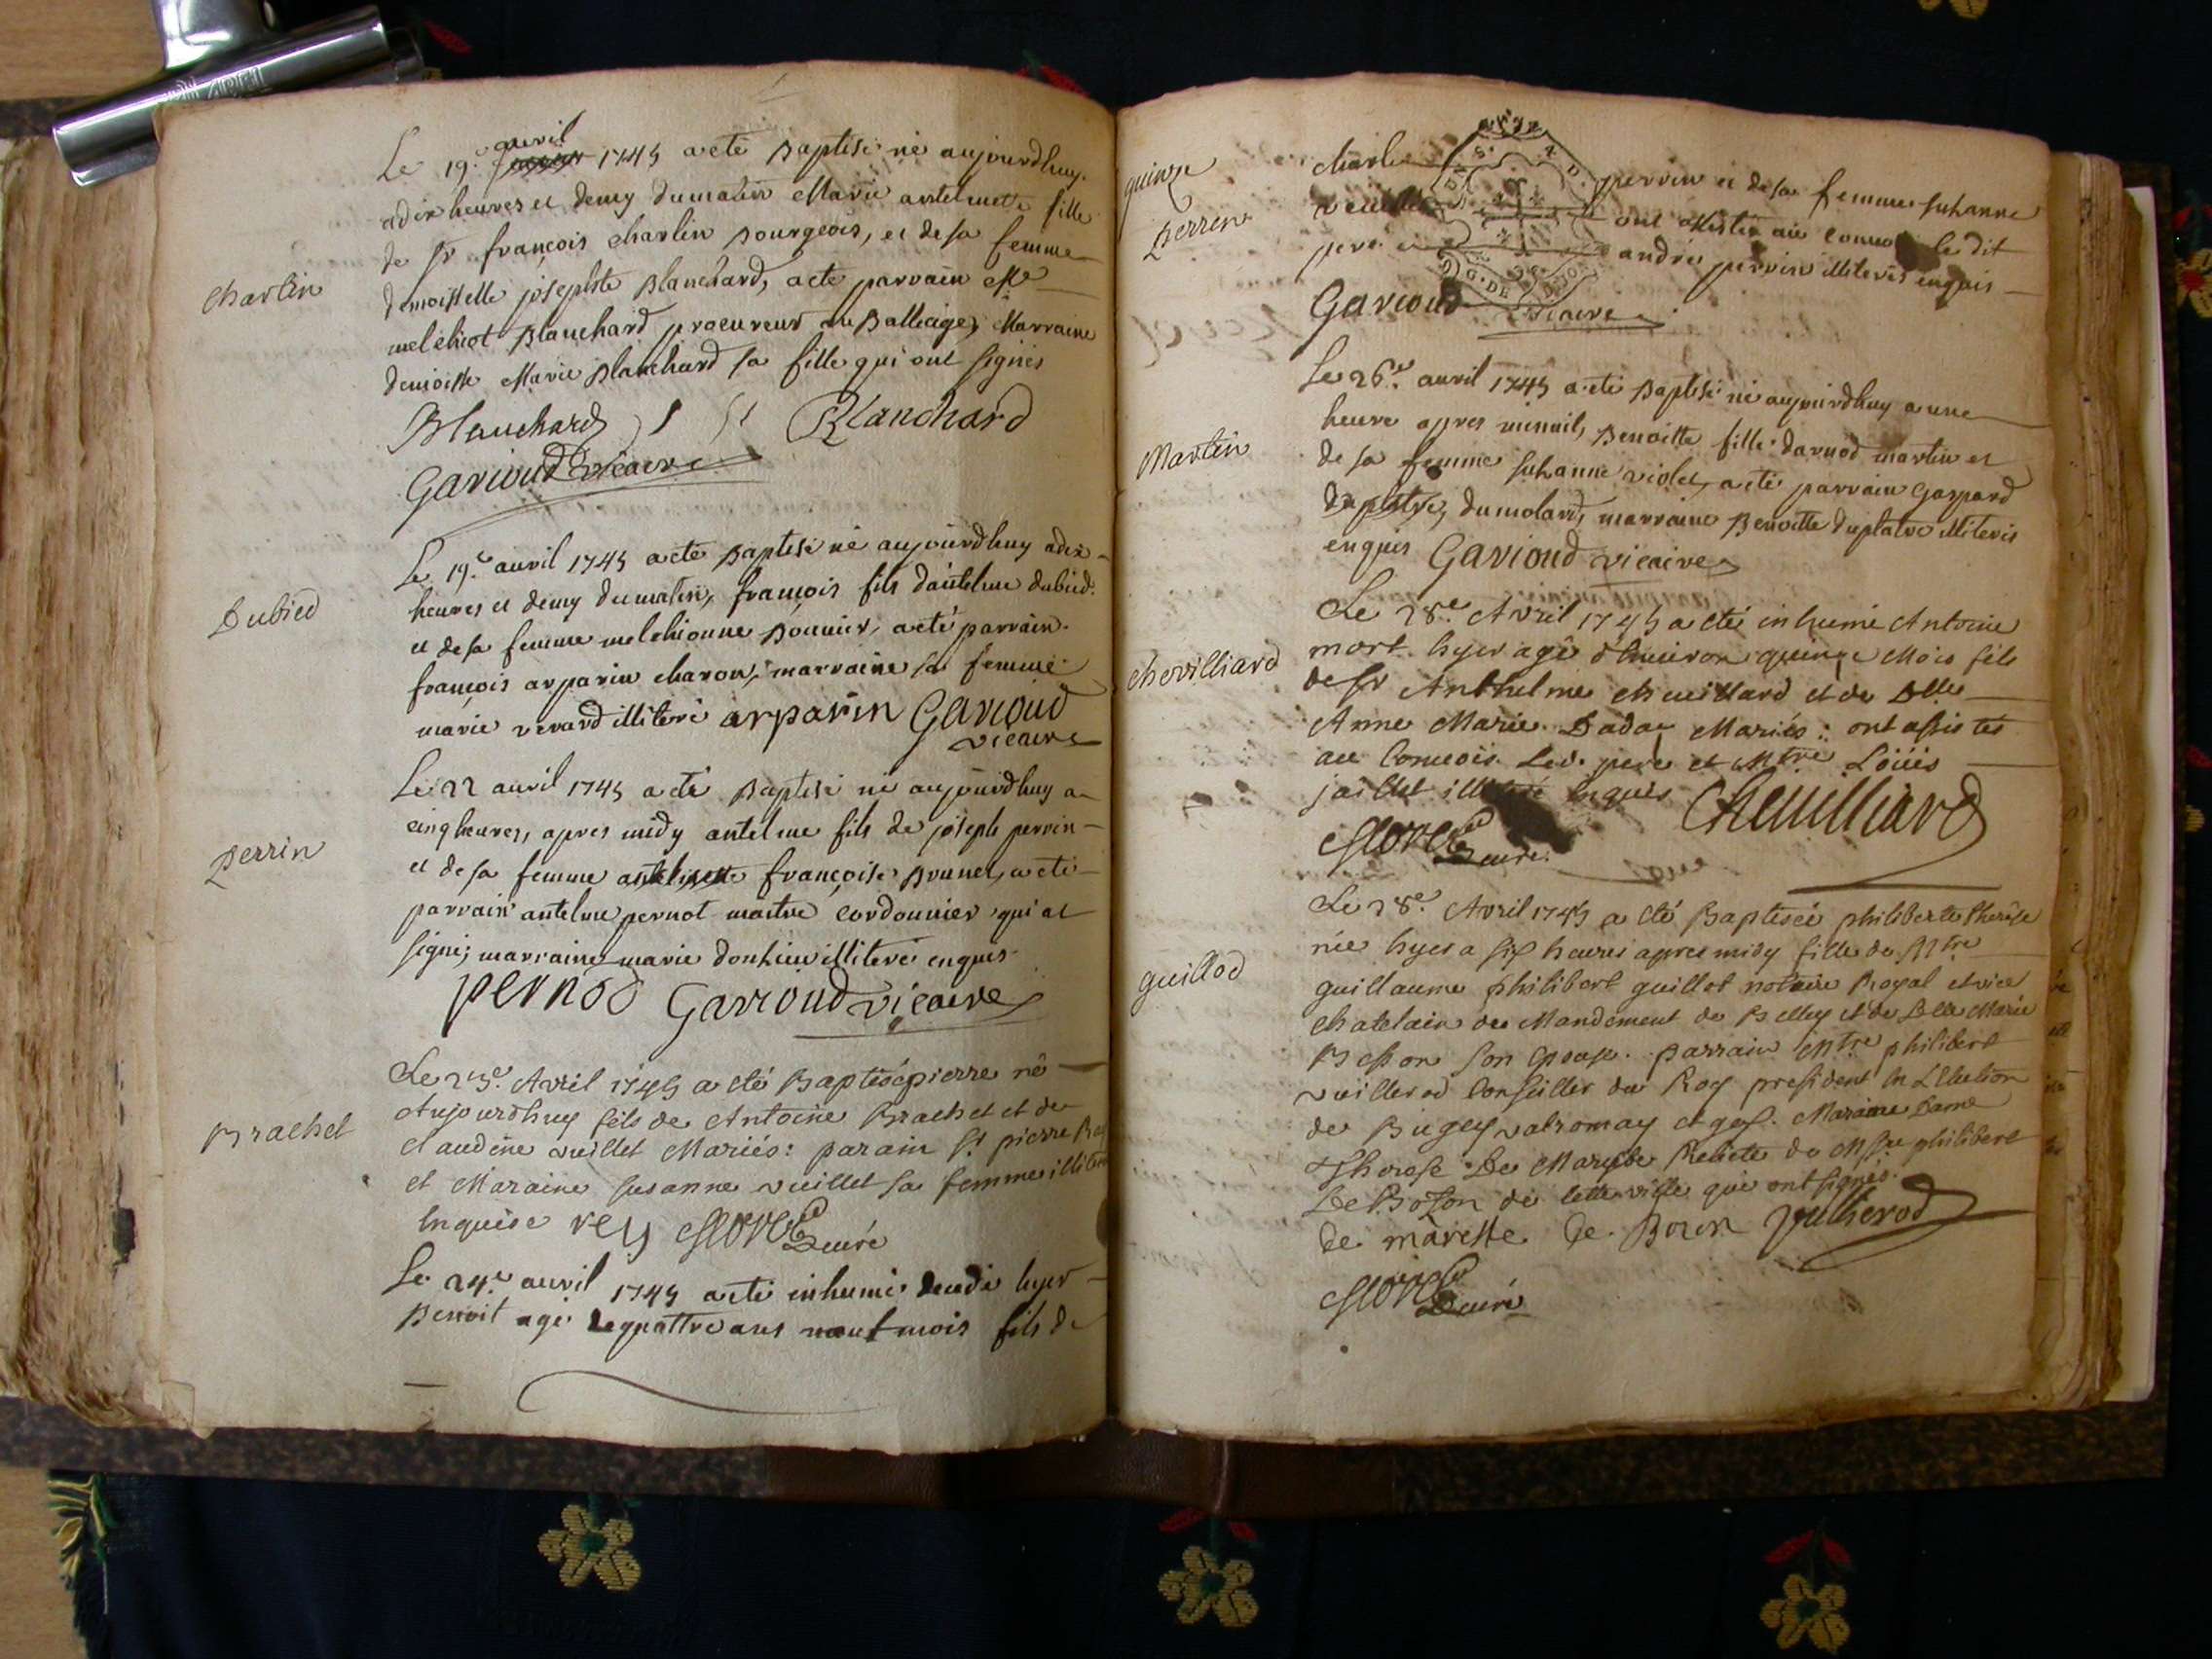 Charlin
Le 19.e avril 1745 a eté Baptisé né aujourdhuy
a dix heures et demy du matin Marie antelmette fille
de sr françois charlin Bourgeois, et de sa femme
demoiselle josephte Blanchard, a eté parrain Mre
melchiot Blanchard procureur au Balliage, Marraine
demoiselle Marie Blanchard sa fille qui ont signés
Blanchard Blanchard
Garioud vicaire
Dubied
Le 19.e avril 1745 a eté Baptisé né aujourdhuy a dix
heures et demy du matin, françois fils dantelme dubied
et de sa femme melchionne Bonnier, a eté parrain
françois arparin charon, marraine sa femme
marie verard illiteré arparin Garioud
vicaire
perrin
Le 22 avril 1745 a eté Baptisé né aujourdhuy a
cinq heures, apres midy antelme fils de joseph perrin
et de sa femme françoise Brunet, a eté
parrain antelme pernot maitre cordonnier qui a
signé; marraine marie donhieu illiteré enquis
pernod Garioud vicaire
Brachet
Le 23e. Avril 1745 a eté Baptisé pierre né
Aujourdhuy fils de Antoine Brachet et de
Claudine vuillet Mariés: parain sr pierre Rey
et Maraine susanne vuillet sa femme illiteré
Enquise rey
curé
Le 24.e avril 1745 a eté inhumé decedé hyer
Benoit agé de quattre ans neuf mois fils de
quinze
perrin
charle perrin et de sa femme suhanne
vuillet ont assisté au convoi le dit
pere et andré perrin illiterés enquis
Garioud vicaire
Martin
Le 26.e avril 1745 a eté Baptisé né aujourdhuy a une
heure apres minuit, Benoitte fille darnod martin et
de sa femme suhanne violet, a eté parrain Gaspard
duplatre, dumolard, marraine Benoitte duplatre illiterés
enquis Garioud vicaire
chevilliard
Le 28.e Avril 1745 a eté inhumé Antoine
mort hyer agé d'Environ quinze Mois fils
de sr Anthelme cheuillard et de Dlle
Anne Marie Dadaz Mariés: ont assistés
au Convois Led. pere et Mtre Loüis
jaillet illiteré Enquis Cheuilliard
curé
guillod
Le 28e. Avril 1745 a eté Baptisée philiberte therese
née hyer a six heures apres midy fille de Mtre
guillaume philibert guillot notaire Royal et vice
chatelain du Mandement de Belley et de Dlle Marie
Besson son Epouse. parrain Mtre philibert
vuillerod Conseiller du Roy president En L'Election
de Bugey valromay et gex. Maraine Dame
Therese De Mareste Relicte de Msre philibert
De Bozon de cette ville qui ont signés.
de mareste De Bozon vullierod
curé